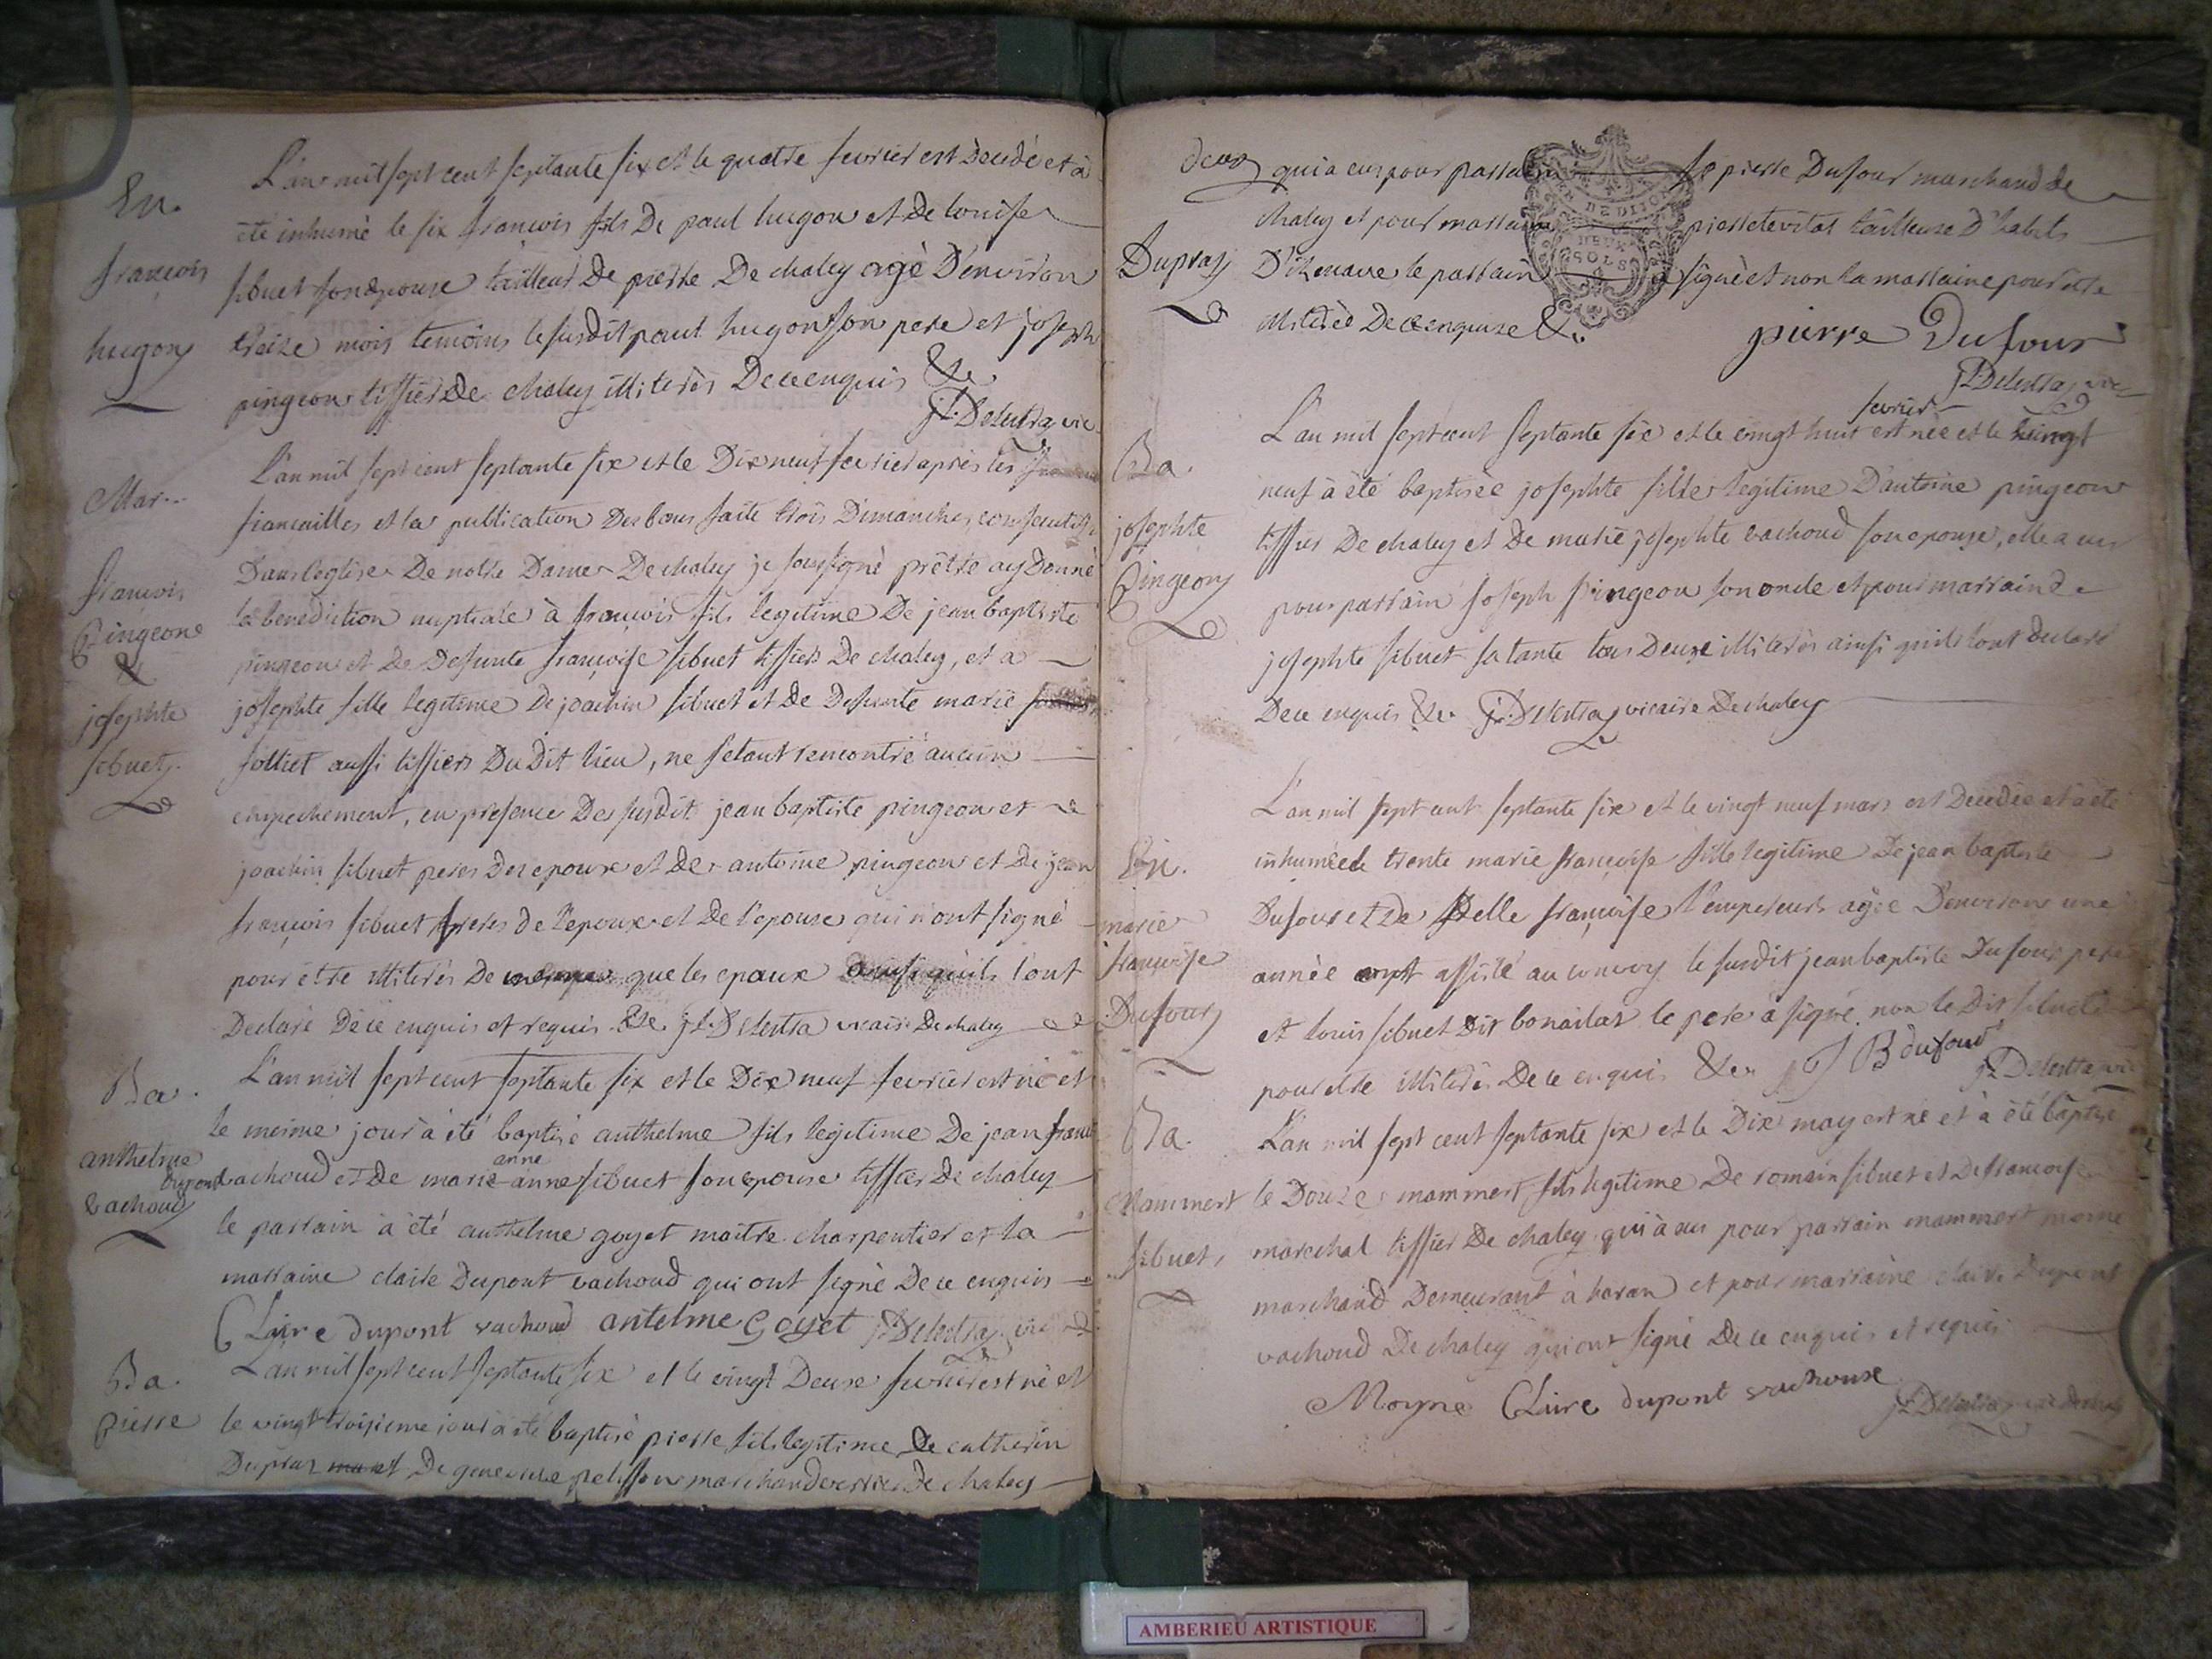 En.
françois
hugon
L'an mil sept cent septante six et le quatre fevrier est décédé et à
eté inhumé le six françois fils De paul hugon et De louise
sibuet son epouse tailleur De pierre De chaley agé D'environ
treize mois temoins le susdit paul hugon son pere et joseph
pingeon tissier de chaley illiterés De ce enquis &c
Delestra vic
Mar...
françois
Pingeon
&
josephte
sibuet
L'an mil sept cent septante six et le Dix neuf fevrier après les
fiancailles et la publication Des bans faite trois Dimanches consecutifs
Dans l'eglise De notre Dame De chaley je soussigné prêtre ay Donné
la benediction nuptiale à françois fils legitime De jean baptiste
pingeon et De Defunte françoise sibuet tissiers De chaley, et a
josephte fille legitime De joachin sibuet et de Defunte marie
jolliet aussi tissiers Du Dit lieu, ne s'etant rencontré aucun
empechement, en presence Des susdits jean baptiste pingeon et
joachin sibuet peres Des epoux et de antoine pingeon et De jean
françois sibuet freres de l'epoux et De l'epouse qui n'ont signé
pour être illiterés De que les epoux ainsi qu'ils l'ont
Declaré De ce enquis et requis &c Delestra vicaire De chaley
Ba.
anthelme
Dupont
vachoud
L'an mil sept cent septante six et le Dix neuf fevrier est né et
le meme jour à été baptisé anthelme fils legitime De jean franc
anne
vachoud et de marie anne sibuet son epouse tissier De chaley
le parrain à été anthelme goyet maitre charpentier et la
marraine claire Dupont vachoud qui ont signé De ce enquis
CLaire dupont vachoud antelme Goyet Delestra vic
Ba.
pierre
L'an mil sept cent septante six et le vingt Deux fevrier est né et
le vingt troisieme jour à été baptisé pierre fils legitime De catherin
Dupraz De genevieve pelisson marchand De chaley
deux
Dupraz
qui a eu pour parrain sr pierre Dufour marchand de
chaley et pour marraine pierrete vital tailleuse D'habits
D'izenave le parrain a signé et non la marraine pour etre
illiterée De ce enquise &c.
DE DIJON
DEUX
SOLS
pierre Dufour
Delestra vic
Ba.
josephte
Pingeon
fevrier
L'an mil sept cent septante six et le vingt huit est née et le vingt
neuf à été baptisée josephte fille legitime D'antoine pingeon
tissier De chaley et De marie josephte vachoud son epouse, elle a eu
pour parrain joseph pingeon son oncle et pour marraine
josephte sibuet sa tante tous Deux illiterés ainsi qu'ils l'ont declaré
De ce enquis &c Delestra vicaire De chaley
En.
marie
françoise
Dufour
L'an mil sept cent septante six et le vingt neuf mars est Decedée et à été
inhumée le trente marie françoise fille legitime De jean baptiste
Dufour et De Delle françoise l'empereur agée D'environ une
année ont assisté au convoy le susdit jean baptiste Dufour pere
et louis sibuet Dit bonailat le pere à signé non le Dit sibuet
pour etre illiterés De ce enquis &c J B dufour Delestra vic
Ba.
Mammert
sibuet
L'an mil sept cent septante six et le Dix may est né et à été baptisé
le Douze mammert fils legitime De romain sibuet et De françoise
marechal tissier De chaley qui à eu pour parrain mammert moine
marchand Demeurant à haran et pour marraine claire Dupont
vachoud De chaley qui ont signé De ce enquis et requis
Moyne CLaire dupont vachoux
AMBERIEU ARTISTIQUE